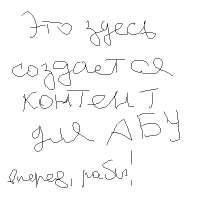 Это здесь
создается
контент
для АБУ
вперед, рабы!